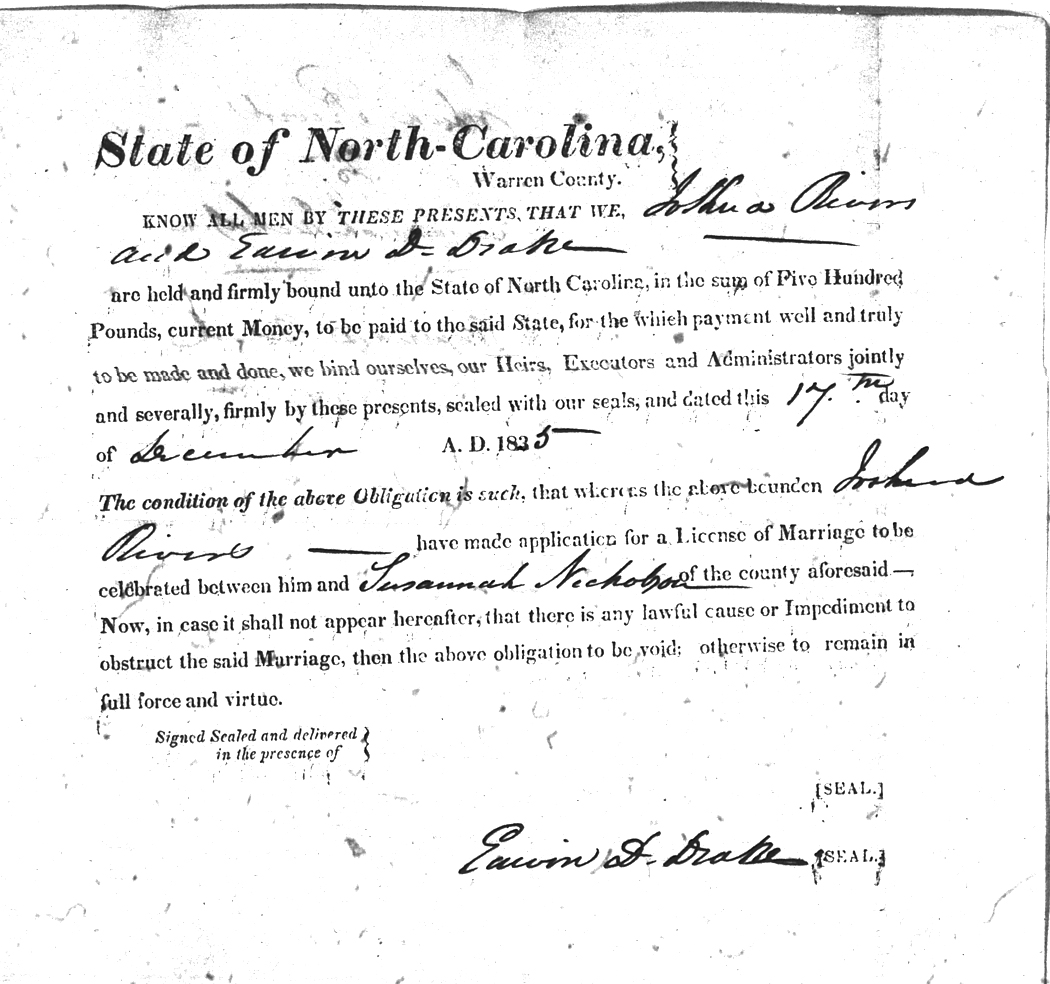 State of North-Carolina,
Warren County.
KNOW ALL MEN BY THESE PRESENTS, THAT WE, Joshua Rivers
and Edwin D. Drake
are held and firmly bound unto the State of North Carolina, in the sum of Five Hundred
Pounds, current Money, to be paid to the said State, for the which payment well and truly
to be made and done, we bind ourselves, our Heirs, Executors and Administrators jointly
and severally, firmly by these presents, sealed with our seals, and dated this 17th day
of December A. D. 1835
The condition of the above Obligation is such, that whereas the above bounden Joshua
Rivers have made application for a License of Marriage to be
celebrated between him and Susannah Nicholson of the county aforesaid—
Now, in case it shall not appear hereafter, that there is any lawful cause or Impediment to
obstruct the said Marriage, then the above obligation to be void; otherwise to remain in
full force and virtue.
Signed Sealed and delivered
in the presence of
[SEAL.]
Edwin D. Drake [SEAL.]